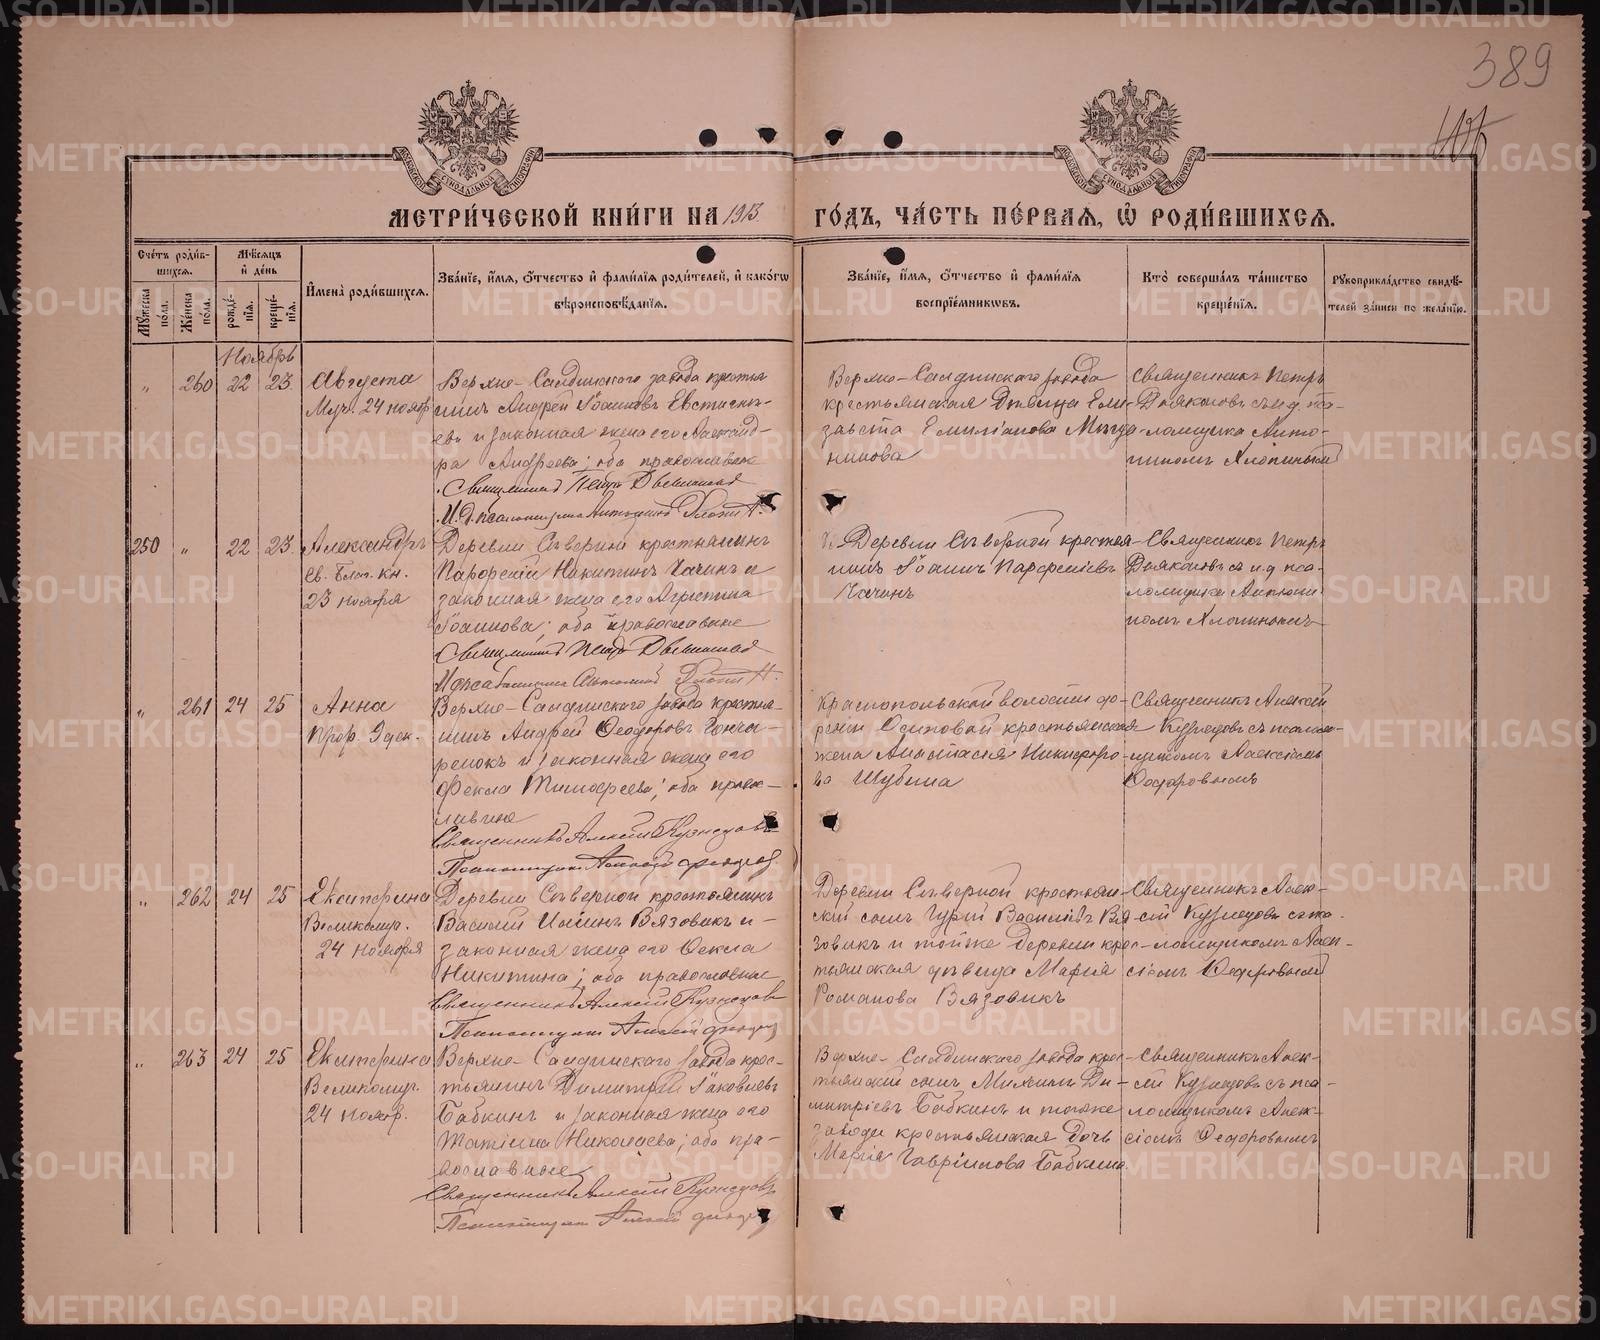 389
МЕТРИ́ЧЕСКОЙ КНИ́ГИ НА 1913 ГО́ДЪ, ЧА́СТЬ ПЕ́РВАЯ, Ѡ҆ РОДИ́ВШИХСЯ.
Сче́тъ роди́вшихся.
Му́жеска по́ла.
Же́нска по́ла.
Мѣ́сяцъ и҆ де́нь
рожде́нїя.
креще́нїя.
И҆мена̀ роди́вшихся.
Зва́нїе, и҆́мя, ѻ҆́тчество и҆ фами́лїя роди́телей, и҆ како́гѡ
вѣроисповѣ́данїя.
Зва́нїе, и҆́мя, ѻ҆́тчество и҆ фами́лїя
воспрїе́мниковъ.
Кто̀ соверша́лъ та́инство
креще́нїя.
Рꙋкоприкла́дство свидѣ́-
телей за́писи по жела́нїю.
Ноябрь
" 260 22 23
Августа
Муч. 24 нояб
Верхне-Салдинского завода крестья
нинъ Андрей Іоанновъ Евстигнѣ-
евъ и законная жена его Александ-
ра Андреева; оба православные
Священникъ Петръ
И. д. псаломщика Антонинъ
Верхне-Салдинского завода
крестьянская дѣвица Ели-
завета Емиліанова
Священникъ Петръ
Дьяконовъ съ и.д. пса-
ломщика Анто-
ниномъ Хлопинымъ
250 " 22 23
Александръ
Св. Благ. кн.
23 ноября
Деревни Сѣверной крестьянинъ
Парфеній Никитинъ Чачинъ и
законная жена его Агриппина
Іоаннова; оба православные
Священникъ Петръ
Деревни Сѣверной крестья
нинъ Іоаннъ Парфеніевъ
Чачинъ
Священникъ Петръ
Дьяконовъ съ и.д. пса-
ломщика Антони-
номъ Хлопинымъ
" 261 24 25
Анна
Прор. 9 дек.
Верхне-Салдинского завода крестья-
нинъ Андрей Ѳеодоровъ Гонча-
ренокъ и законная жена его
Фекла Тимофеева; оба право-
славные
Священникъ Алексій Кузнецовъ
Псаломщикъ Алексій
Краснопольской волости де-
ревни Осиповой крестьянская
жена Анастасія Никифоро-
ва Шубина
Священникъ Алексій
Кузнецовъ съ псалом-
щикомъ Алексіемъ
Ѳеодоровымъ
" 262 24 25
Екатерина
Великомуч.
24 ноября
Деревни Сѣверной крестьянинъ
Василій Ильинъ Вязовикъ и
законная жена его Ѳекла
Никитина; оба православные
Священникъ Алексій Кузнецовъ
Псаломщикъ Алексій
Деревни Сѣверной крестьян-
скій сынъ Гурій Васильевъ Вя
зовикъ и той же деревни крес-
тьянская дѣвица Марія
Романова Вязовикъ
Священникъ Алек-
сій Кузнецовъ съ пса-
ломщикомъ Алек-
сіемъ Ѳедоровымъ
" 263 24 25
Екатерина
Великомуч.
24 нояб.
Верхне-Салдинского завода крес-
тьянинъ Димитрій Іаковлевъ
Бабкинъ и законная жена его
Татіана Николаева; оба пра-
вославные
Священникъ Алексій Кузнецовъ
Псаломщикъ Алексій
Верхне-Салдинского завода крес-
тьянскій сынъ Михаилъ Ди-
митріевъ Бабкинъ и того же
завода крестьянская дочь
Марія Гавріилова Бабкина
Священникъ Алек-
сій Кузнецовъ съ пса-
ломщикомъ Алек-
сіемъ Ѳеодоровымъ
METRIKI.GASO-URAL.RU